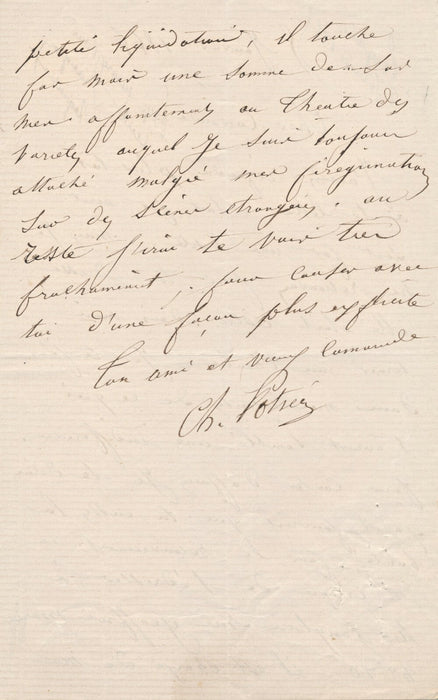 petite liquidation, il touche
par mois une somme de sur
mes appointements au Theatre des
Varietes auquel je suis toujours
attaché malgré mes peregrinations
sur des Scenes etrangeres. au
reste j'irai te voir tres
prochainement, pour causer avec
toi d'une façon plus explicite
Ton ami et vieux camarade
Ch. Potier